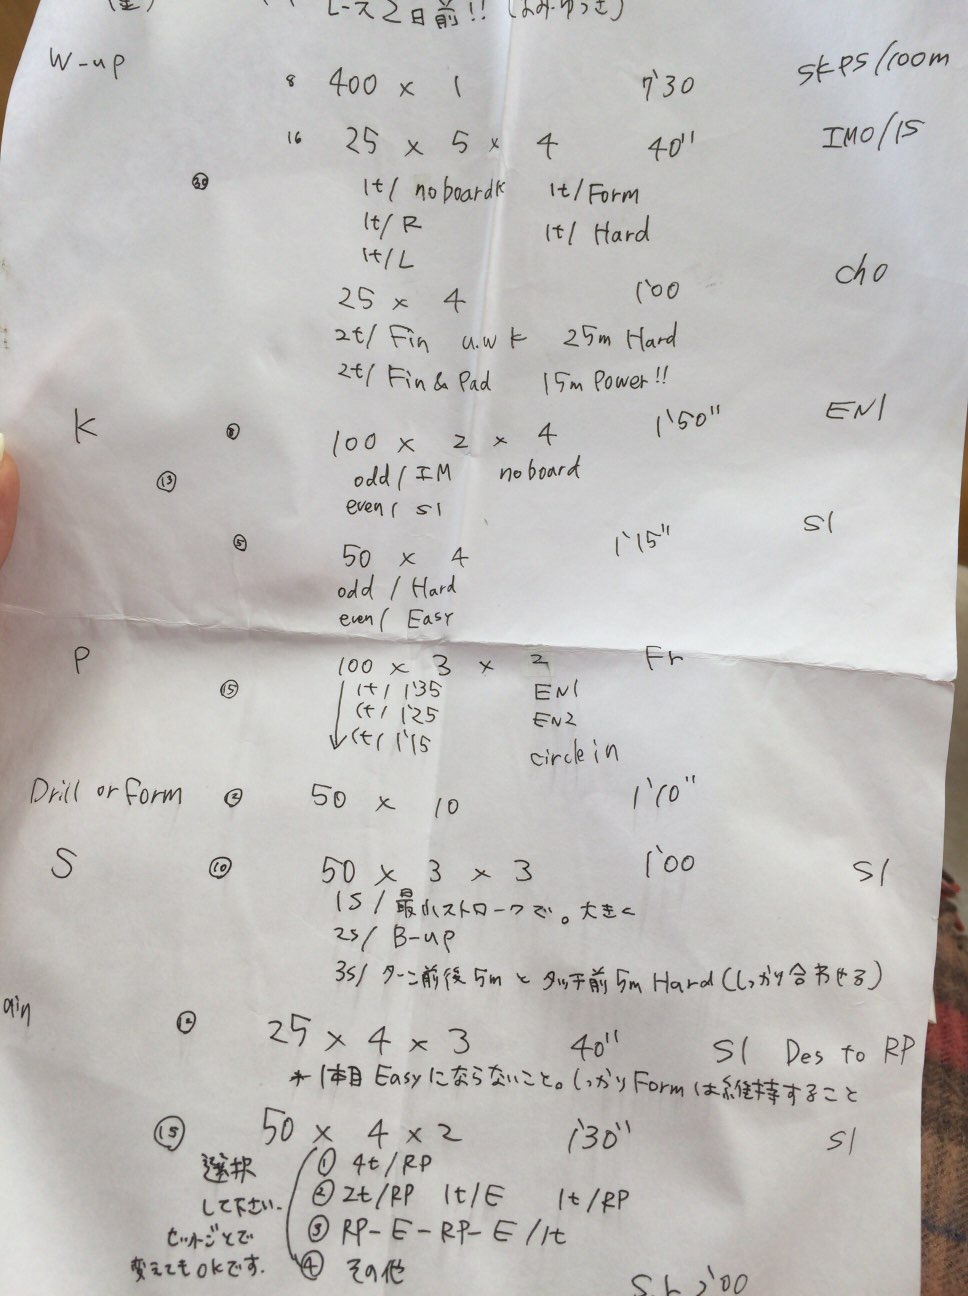 (金) レース2日前!! (よみ・ゆっき)
W-up
8 400 × 1 7'30 SKPS/100m
16 25 × 5 × 4 40" IMO/1S
30 1t/ no board k 1t/Form
1t/ R 1t/ Hard
1t/L
25 × 4 1'00 cho
2t/ Fin u.w k 25m Hard
2t/ Fin & Pad 15m Power!!
K 8 100 × 2 × 4 1'50" EN1
13 odd / IM no board
even/ S1
5 50 × 4 1'15" S1
odd / Hard
even/ Easy
P 100 × 3 × 2 Fr
15 ↓ 1t/ 1'35 EN1
1t/ 1'25 EN2
1t/ 1'15 circle in
Drill or Form 12 50 × 10 1'10"
S 10 50 × 3 × 3 1'00 S1
1S / 最小ストロークで。大きく
2S/ B-up
3S/ ターン前後5mとタッチ前5m Hard (しっかり合わせる)
ain 12 25 × 4 × 3 40" S1 Des to RP
* 1本目 Easyにならないこと。しっかりFormは維持すること
15 50 × 4 × 2 1'30" S1
選択 ① 4t/RP
して下さい. ② 2t/RP 1t/E 1t/RP
セットごとで ③ RP-E-RP-E/1t
変えてもOKです. ④ その他
2'00